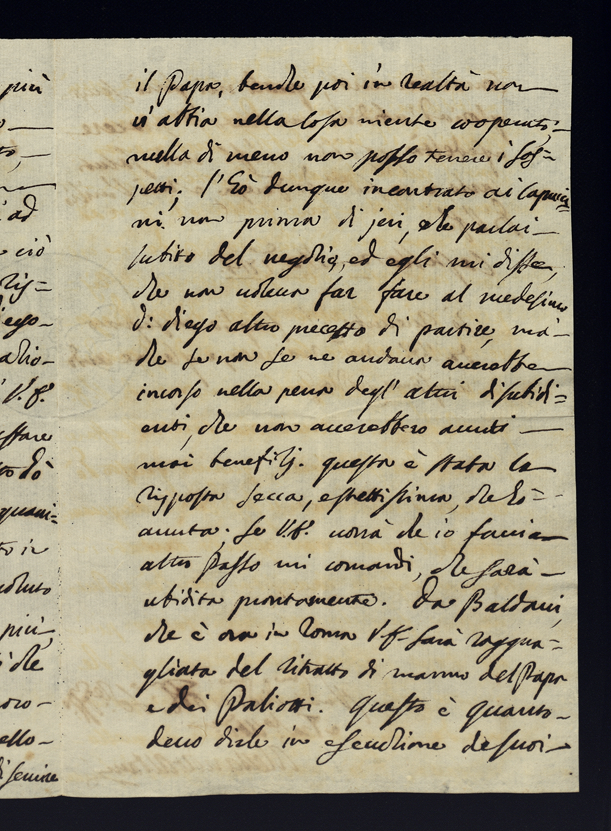 il Papa, benche poi in realtà non
v'abbia nella cosa niente cooperato
nulla di meno non posso tenere i sos=
petti; l'hò dunque incontrato ai Capucci=
ni non prima di jeri, che parlai
subito del negozio, ed egli mi disse,
che non voleva far fare al medesimo
di diego altro precetto di partire, mà
che se non se ne andava averebbe
incorso nella pena degl'altri disubidi=
enti, che non averebbero avuti
mai benefizj. questa è stata la
risposta secca, e strettissima, che hò=
avuta; se V.E. vorrà che io faccia
altro passo mi comandi, che sarà
ubidita prontamente. Da Baldani,
che è ora in Roma V.E. sarà raggua=
gliata del ritratto di marmo del Papa
e dei Paliotti. Questo è quanto
devo dirle in esecuzione de suoi
più
ad
ciò
ris=
V.E.
hò
quani=
to in
più
che
ello
di servire